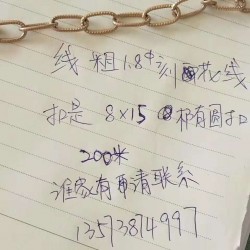 线粗1.8中刻花线
扣是 8×15 椭有圆扣
200米
谁家有再请联系
13573874997